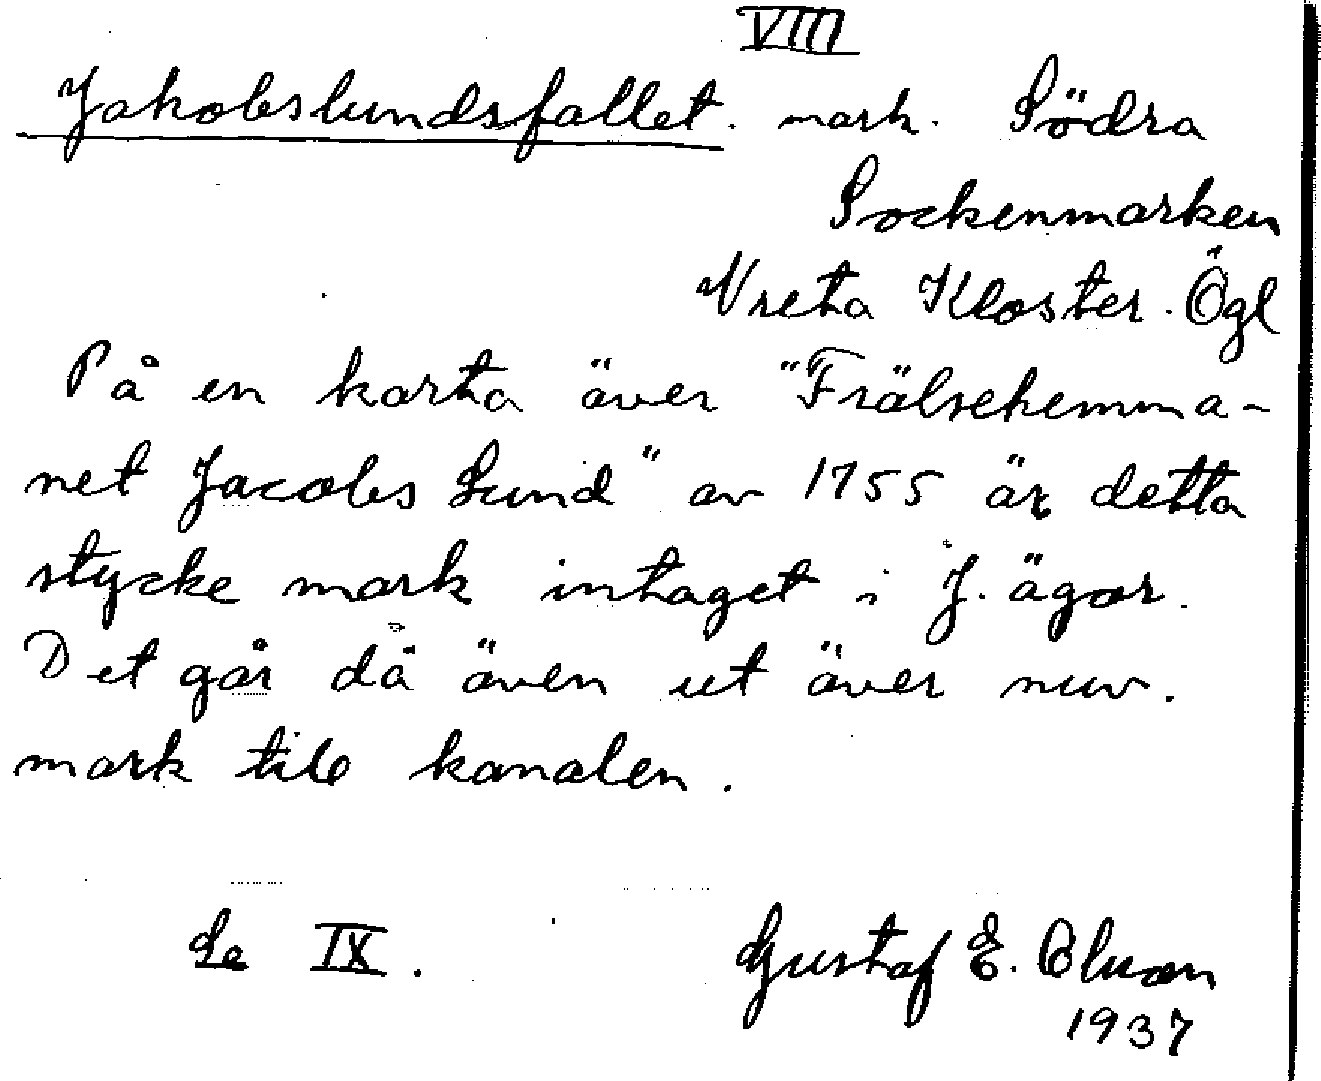 VIII
Jakobslundsfallet. mark. Södra
Sockenmarken
Vreta Kloster. Ögl
På en karta över "Frälsehemma-
net Jacobs Lund" av 1755 är detta
stycke mark intaget i J. ägor.
Det går då även ut över nuv.
mark till kanalen.
Se IX.
Gustaf E. Olsson
1937